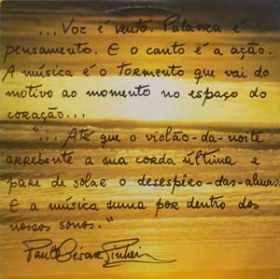 ...Voz é vento. Palavra é
pensamento. E o canto é a ação.
A música é o tormento que vai do
motivo ao momento no espaço do
coração...
"... Até que o violão-da-noite
arrebente a sua corda última e
pare de solar o desespêro-das-almas
E a música suma por dentro dos
nossos sonos."
Paulo César Pinheiro